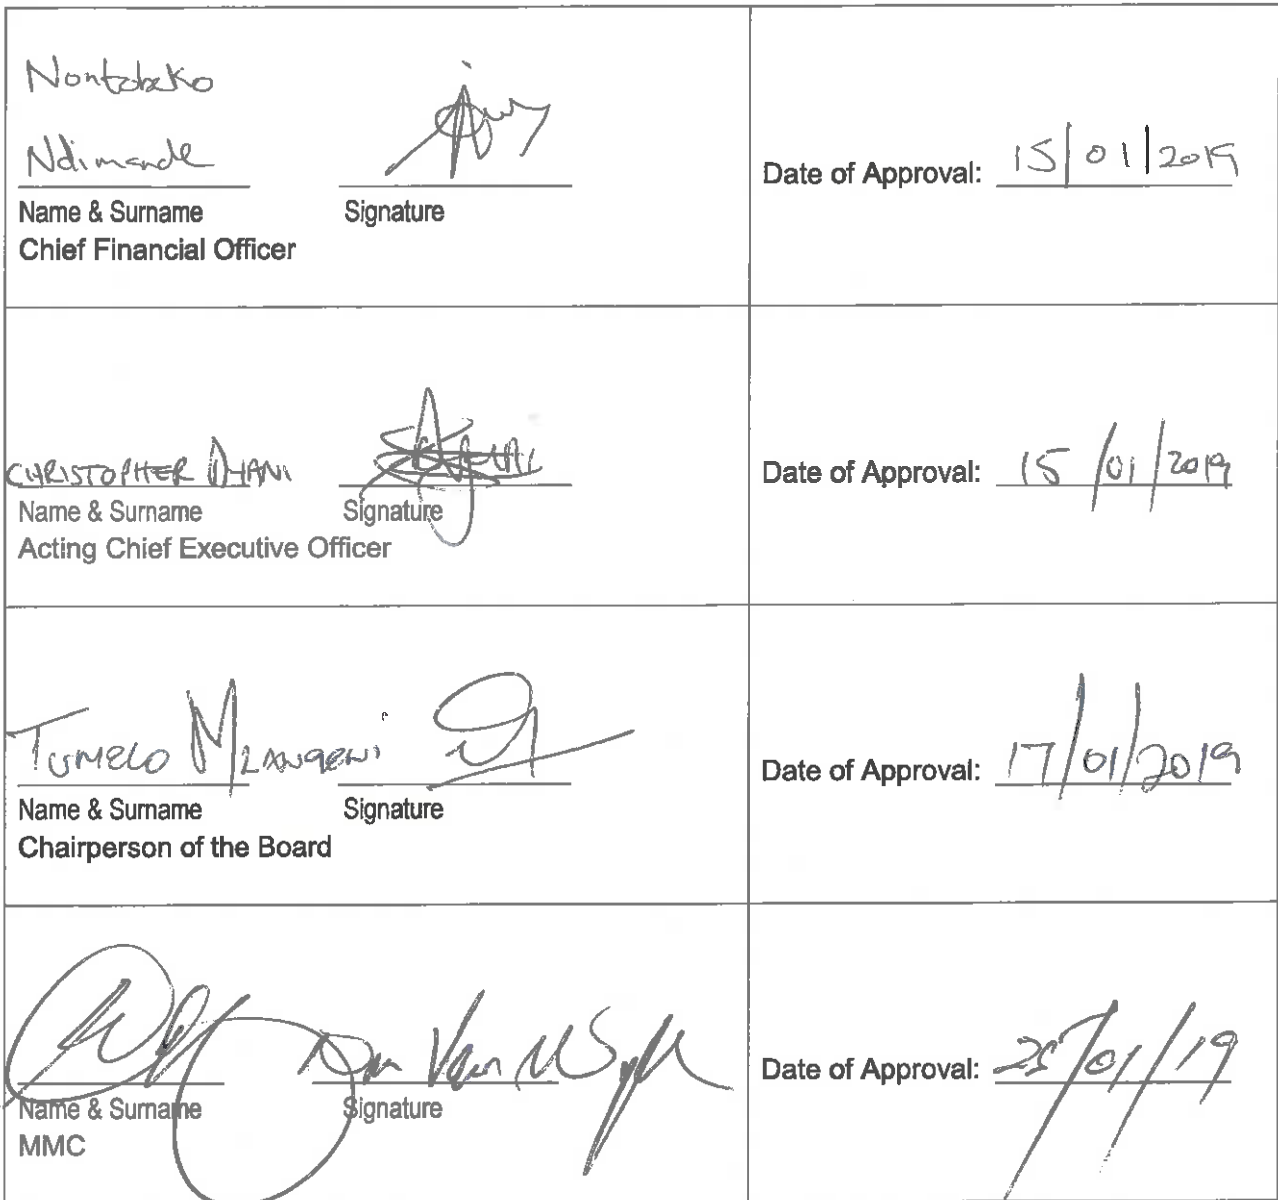 Nontobeko
Ndimande
Name & Surname Signature
Chief Financial Officer
Date of Approval: 15/01/2019
CHRISTOPHER DHANI
Name & Surname Signature
Acting Chief Executive Officer
Date of Approval: 15/01/2019
TUMELO MLANGENI
Name & Surname Signature
Chairperson of the Board
Date of Approval: 17/01/2019
Name & Surname Signature
MMC
Date of Approval: 25/01/19